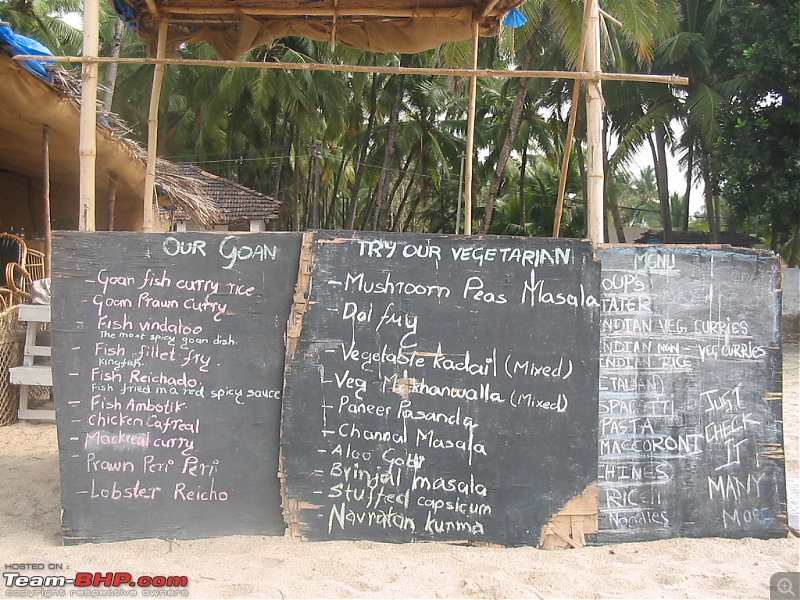 OUR GOAN
- Goan fish curry rice
- Goan Prawn Curry
- Fish vindaloo
The most spicy goan dish.
- Fish fillet fry
Kingfish.
- Fish Reichado.
Fish fried in a red spicy sauce
- Fish Ambotik
- Chicken Cafreal
- Mackreal curry
- Prawn Peri Peri
- Lobster Reicho
TRY OUR VEGETARIAN
- Mushroom Peas Masala
- Dal fry
- Vegetable kadail (Mixed)
- Veg Makhanwalla (Mixed)
- Paneer Pasanda
- Channal Masala
- Aloo Gobi
- Brinjal masala
- Stuffed capsicum
- Navratan kunma
MENU
OUPS
TATER
NDIAN VEG CURRIES
NDIAN NON- VEG CURRIES
NDIAN RICE
ITALIAN)
SPAGETTI
PASTA
MACCORONI
HINES
RICE
Nomales
JUST
CHECK
IT
MANY
MORE
HOSTED ON
Team-BHP.com
copyright respective owners